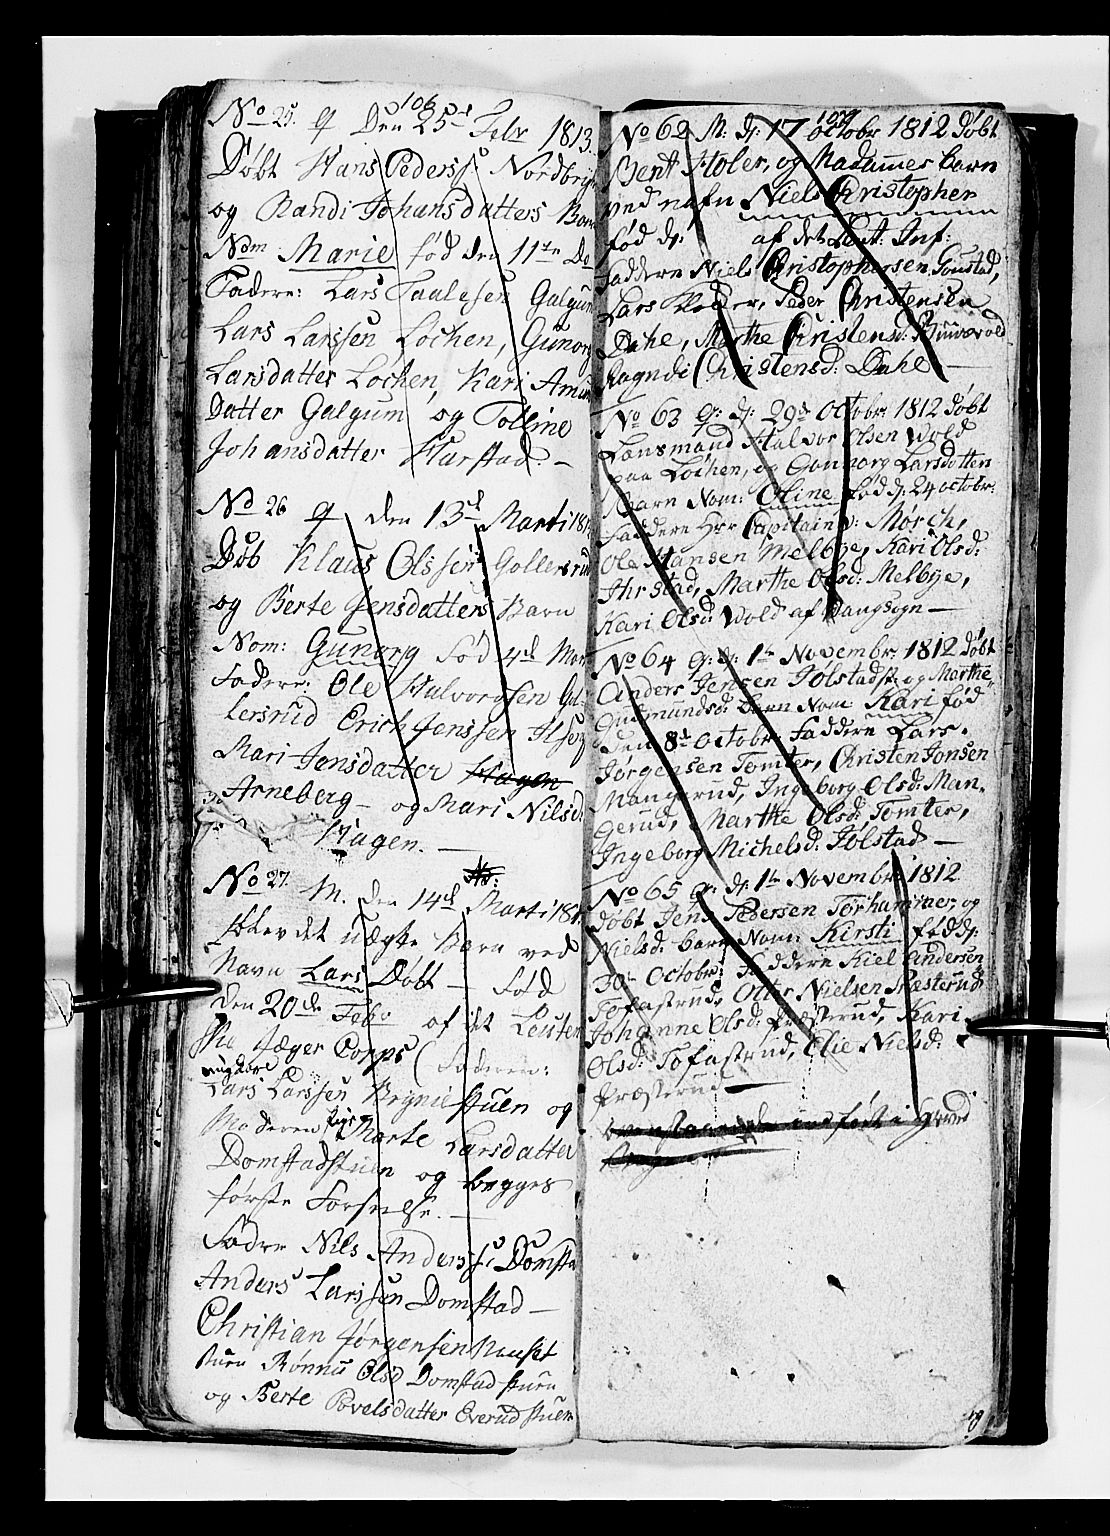 106
No 25. q Den 25de Febr 1813.
Døbt Hans Pederss: Nordbrye
og Randi Johansdatters Barn
Nom Marie fød den 11te De
Fadere: Lars Taalesen Galgum
Lars Larssen Løchen, Gunorg
Larsdatter Løchen, Kari Amun
Datter Galgum og Polline
Johansdatter Harstad. -
No 26 q den 13d Marti 181
Døb Klaus Olssen Gollersrud
og Berte Jensdatters Barn
Nom: Gunorg fød 4d Mar
Fadere: Ole Halvorssen Gol-
lersrud Erich Jenssen Ilseg
Mari Jensdatter Hagen
Arneberg - og Mari Nilsd:
Hagen. -
No 27. M. den 14d Marti 181
Blev det uægte Barn ved
Navn Lars Døbt - fød
den 20de Febr af det Leuten
Jæger Corps ( Faderen:
ungkarl
Lars Larssen Brynie stuen og
Moderen Pige Marte Larsdatter
Domstadstuen og begges
første Forseelse. -
Fadre Nils Anderss: Domsta
Anders Larssen Domstad -
Christian Jørgensen
stuen Rønnu Olsd Domstadstuen
og Berte Povelsdatter Everudstuen
107
No 62 M: d: 17 octobr 1812 Døbt
Bent Holer, og Madammes barn
ved nafn Niels Christopher
fød d: af det Lent: Inf:
Faddere Niels Christophersen Gaustad,
Lars Peder Christensen
Dahl, Marthe Christensd:
Ragndi Christensd: Dahl -
No 63 q: d: 29de Octobr 1812 Døbt
Lansmand Halvor Olsen Wold
paa Løchen, og Gunnorg Larsdatters
Barn Nom: Oline fød d: 24 octobr:
Faddere Hrr Capitain v: Mørch,
Ole Hansen Melbye, Kari Olsd:
Ihrstad, Marthe Olsd: Melbye,
Kari Olsd: Wold af Vangsogn -
No 64 q: d: 1te Novembr. 1812 Døbt
Anders Jensen Jølstadst: og Marthe
Gudmundsd: barn Nom Kari fød
den 8de Octobr. Faddere Lars
Jørgensen Tomter, Christen Jonsen
Mangerud, Ingeborg Olsd: Man-
gerud, Marthe Olsd: Tomter,
Ingeborg Michelsd: Jølstad -
No 65 q: d: 1te Novembr: 1812
døbt Jens Pedersen Torhammer, og
Nielsd: barn Nom: Kirsti fød d:
30te Octobr: Faddere Kiel Andersen
Tofastrud, Otter Nielsen Præsterud
Johanne Olsd: Præsterud, Kari
Olsd: Tofastrud, Elie Nielsd:
Præsterud -
ovenstaaende indført i Hoved